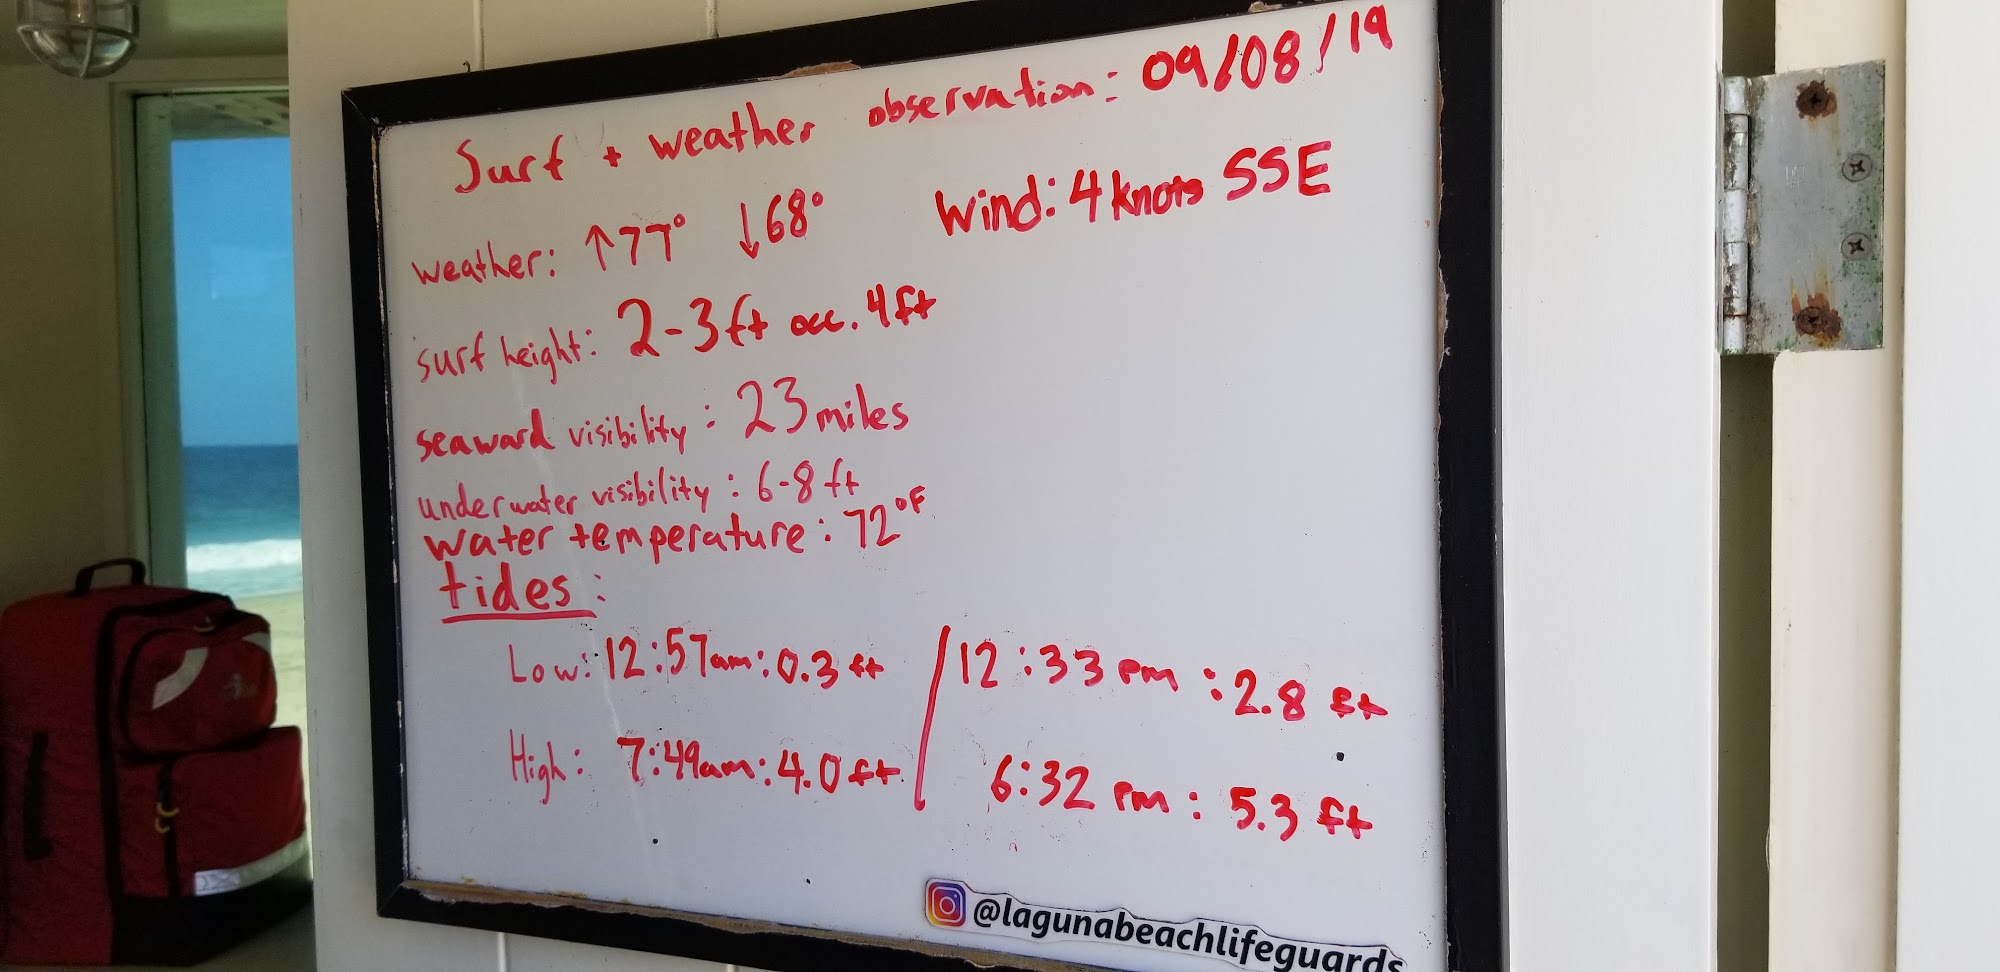 Surf + weather observation: 09/08/19
weather: ↑77° ↓68° Wind: 4 knots SSE
surf height: 2-3ft occ. 4ft
seaward visibility: 23 miles
underwater visibility: 6-8 ft
water temperature: 72°F
tides:
Low: 12:57am: 0.3 ft / 12:33 PM: 2.8 ft
High: 7:49am: 4.0 ft / 6:32 PM: 5.3 ft
@lagunabeachlifeguards